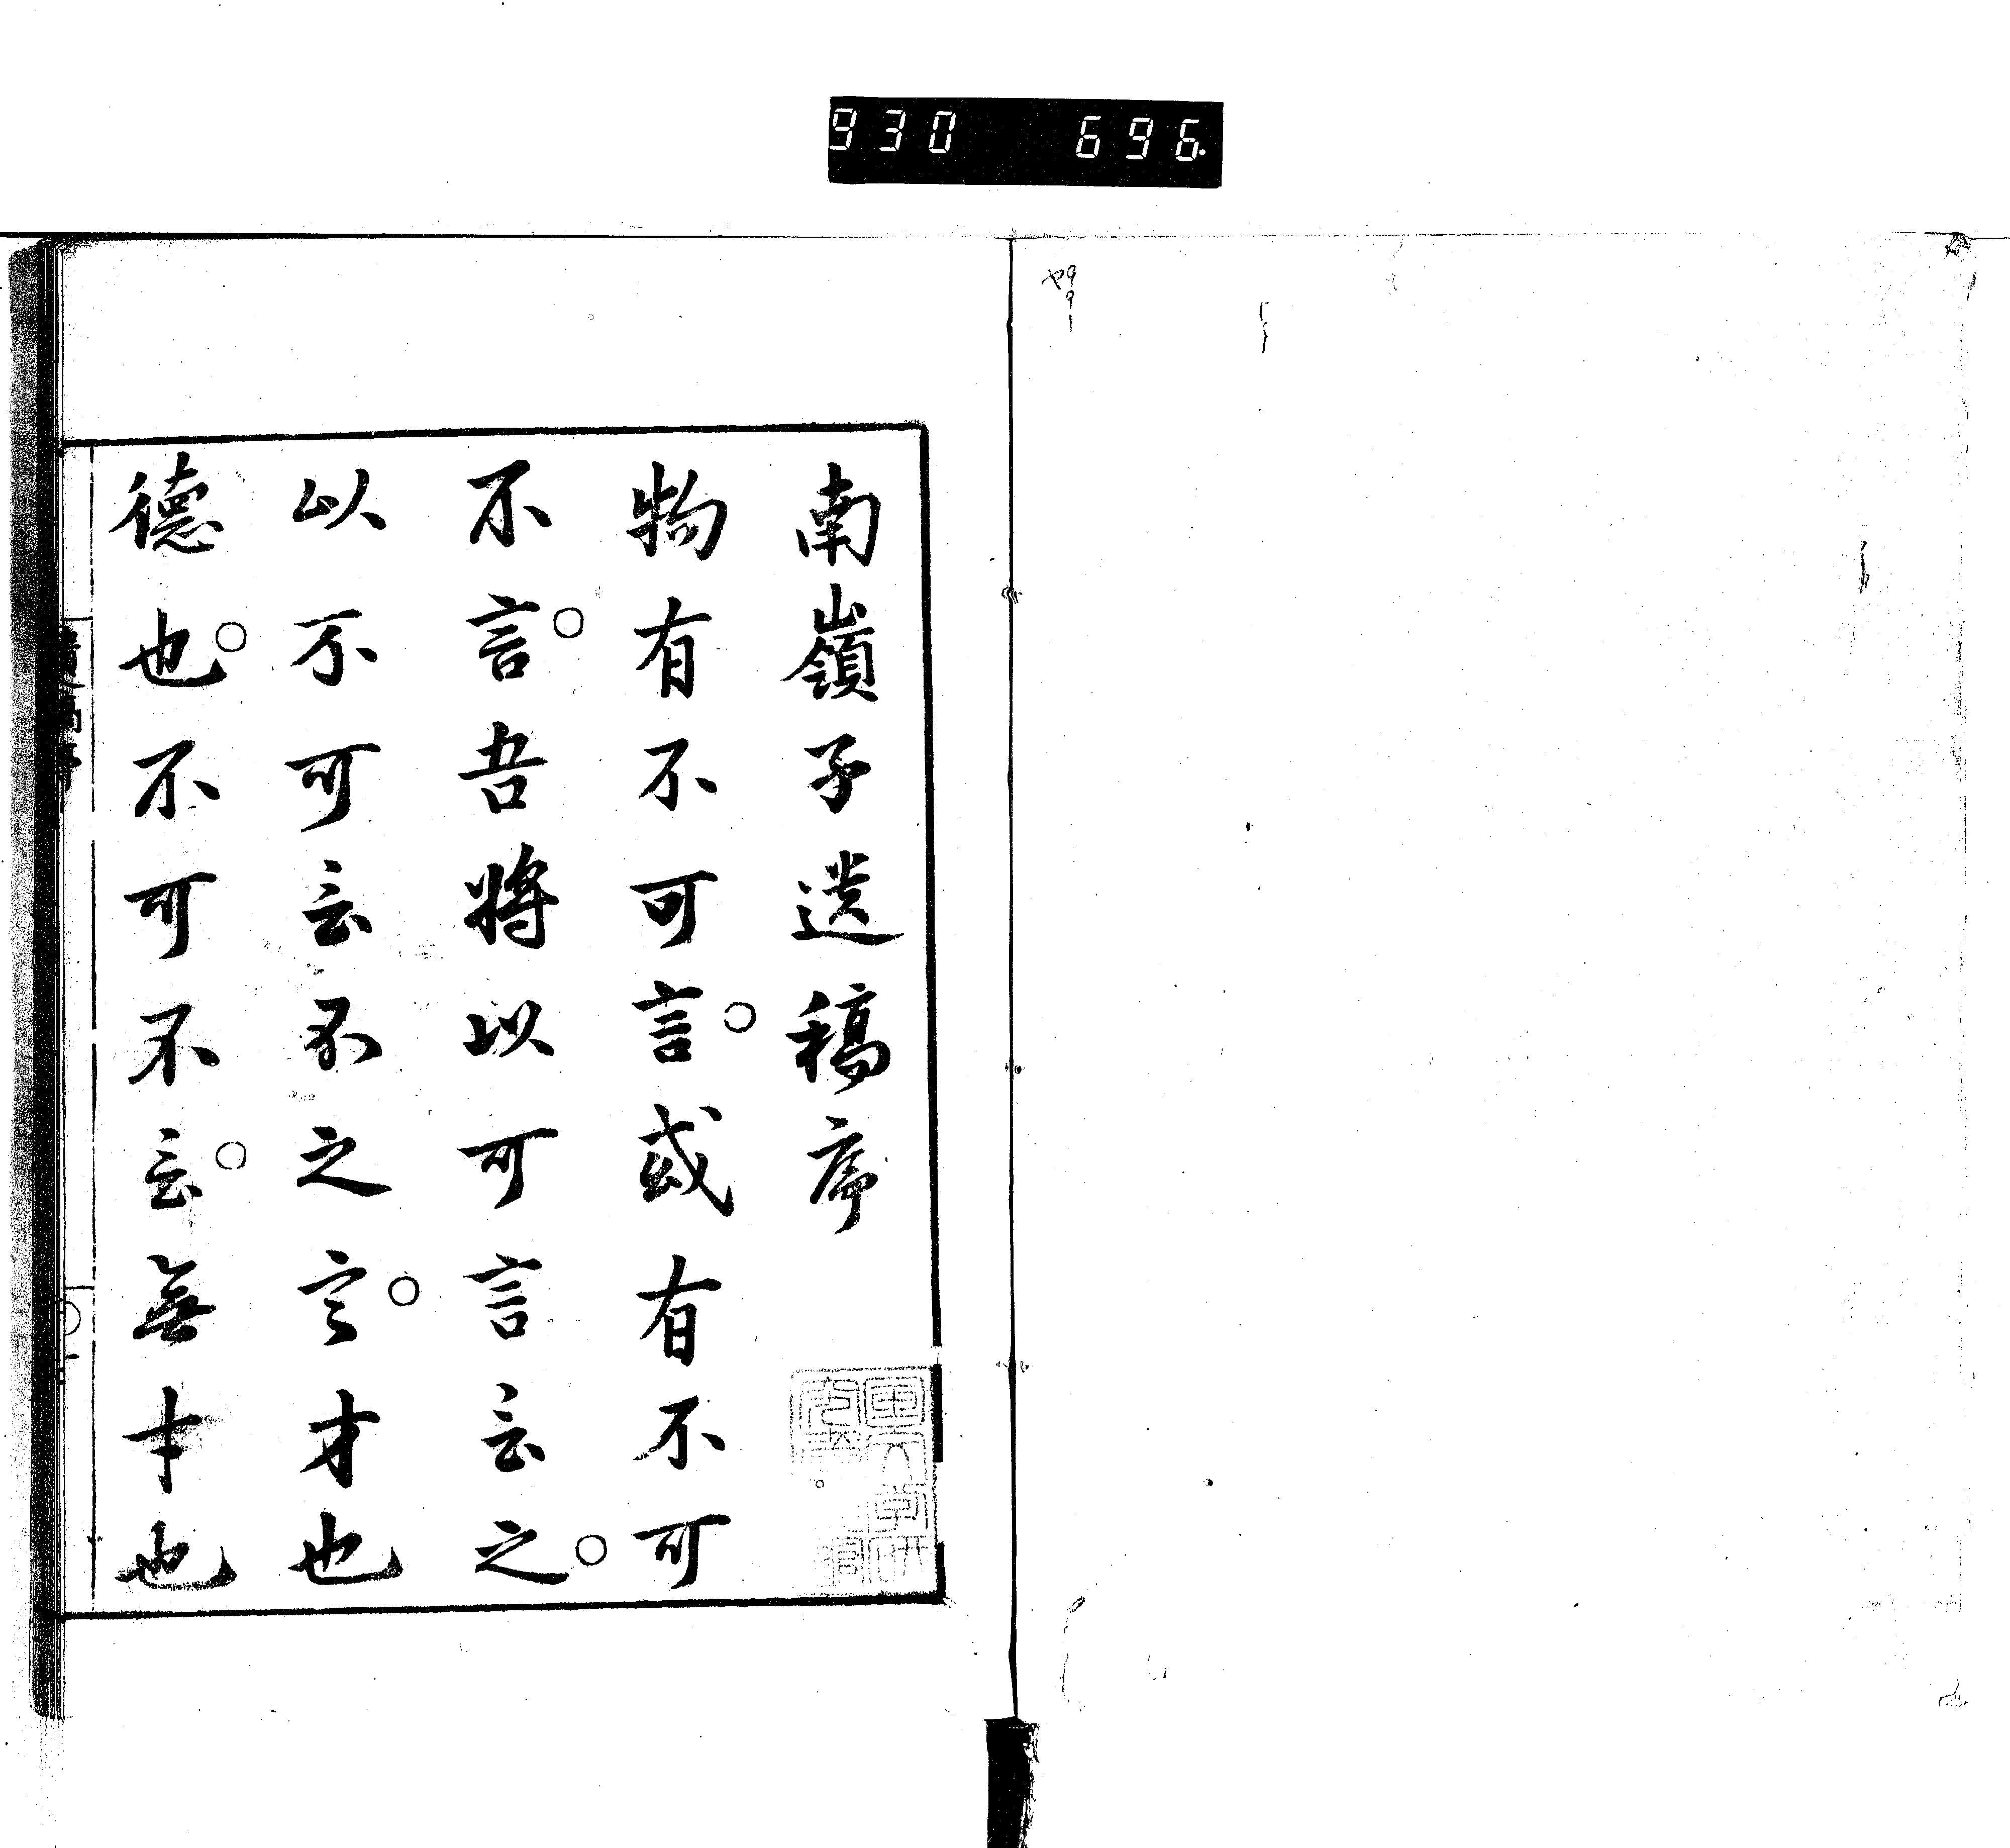 930 696.
南嶺子遺稿序
物有不可言。或有不可
不言。吾將以可言云之。
以不可云不之言。才也
德也。不可不云。無才也